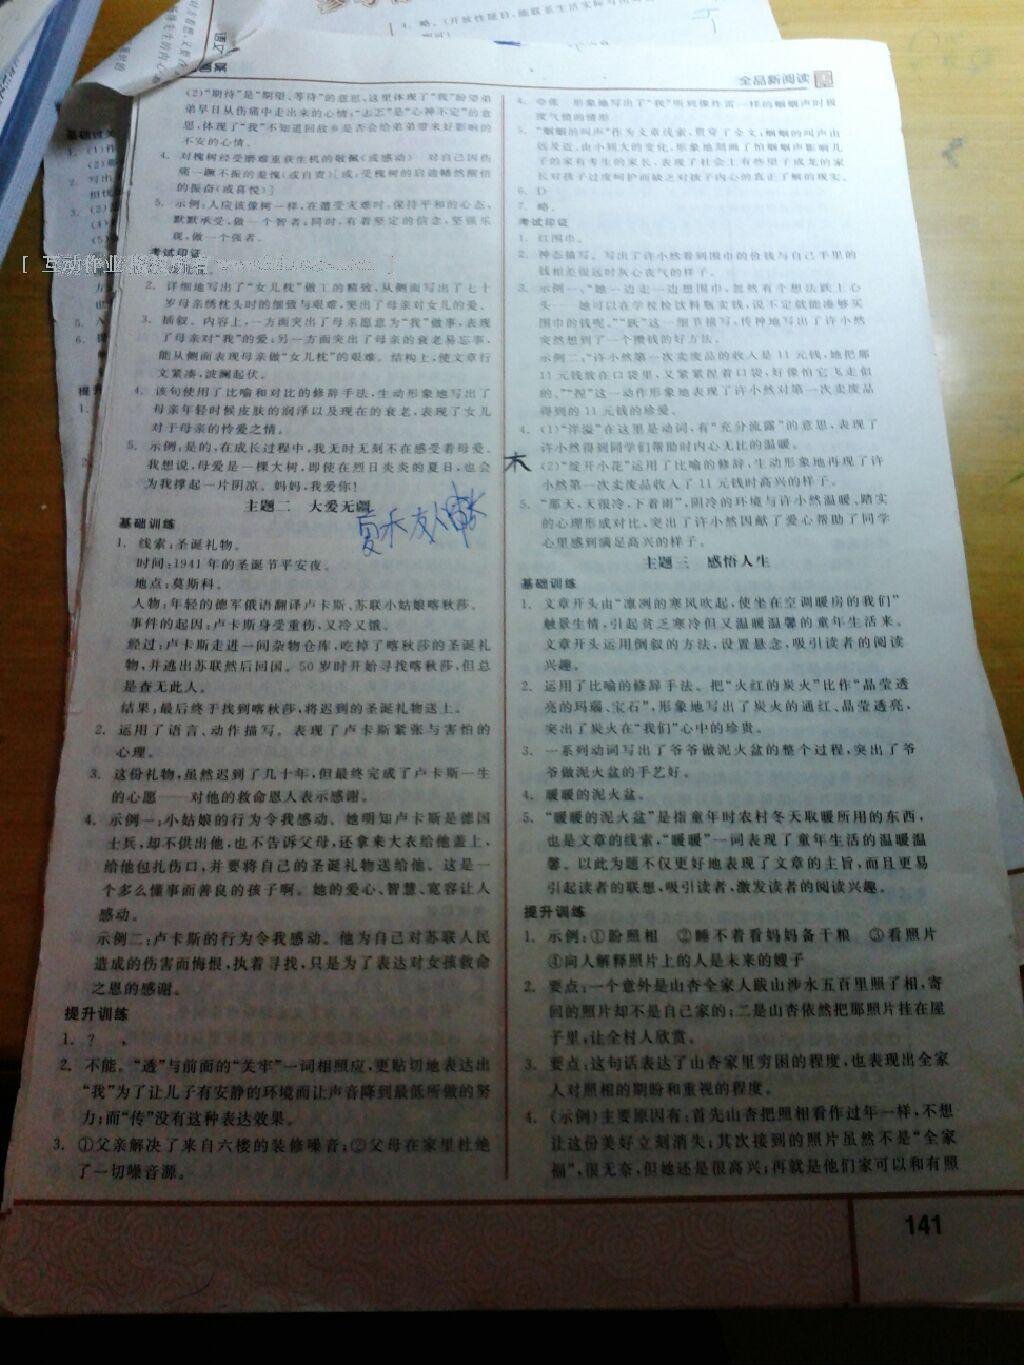 4. 略。(开放性题目,能联系生活实际
全品新阅读
(2)“期待”是“期望、等待”的意思,这里体现了“我”盼望弟
弟早日从伤痛中走出来的心情;“忐忑”是“心神不定”的意
思,体现了“我”不知道回故乡是否会给弟弟带来好影响的
不安的心情。
4. 对槐树经受磨难重获生机的敬佩(或感动) 对自己因伤
痛一蹶不振的羞愧(或自责)[或,受槐树的启迪幡然醒悟
的振奋(或喜悦)]
5. 示例:人应该像树一样,在遭受灾难时,保持平和的心态,
默默承受,做一个智者;同时,有着坚定的信念,坚强乐
观,做一个强者。
考试印证
[ 互动作业
2. 详细地写出了“女儿枕”做工的精致,从侧面写出了七十
岁母亲绣枕头时的细致与艰难,突出了母亲对女儿的爱。
3. 插叙。内容上,一方面突出了母亲愿意为“我”做事,表现
了母亲对“我”的爱;另一方面突出了母亲的衰老易忘事,
能从侧面表现母亲做“女儿枕”的艰难。结构上:使文章行
文紧凑,波澜起伏。
4. 该句使用了比喻和对比的修辞手法,生动形象地写出了
母亲年轻时候皮肤的润泽以及现在的衰老,表现了女儿
对于母亲的怜爱之情。
5. 示例:是的,在成长过程中,我无时无刻不在感受着母爱。
我想说,母爱是一棵大树,即使在烈日炎炎的夏日,也会
为我撑起一片阴凉。妈妈,我爱你!
主题二 大爱无疆
基础训练
1. 线索:圣诞礼物。
时间:1941年的圣诞节平安夜。
地点:莫斯科。
人物:年轻的德军俄语翻译卢卡斯、苏联小姑娘喀秋莎。
事件的起因:卢卡斯身受重伤,又冷又饿。
经过:卢卡斯走进一间杂物仓库,吃掉了喀秋莎的圣诞礼
物,并逃出苏联然后回国。50岁时开始寻找喀秋莎,但总
是查无此人。
结果:最后终于找到喀秋莎,将迟到的圣诞礼物送上。
2. 运用了语言、动作描写。表现了卢卡斯紧张与害怕的
心理。
3. 这份礼物,虽然迟到了几十年,但最终完成了卢卡斯一生
的心愿——对他的救命恩人表示感谢。
4. 示例一:小姑娘的行为令我感动。她明知卢卡斯是德国
士兵,却不供出他,也不告诉父母,还拿来大衣给他盖上,
给他包扎伤口,并要将自己的圣诞礼物送给他。这是一
个多么懂事而善良的孩子啊。她的爱心、智慧、宽容让人
感动。
示例二:卢卡斯的行为令我感动。他为自己对苏联人民
造成的伤害而悔恨,执着寻找,只是为了表达对女孩救命
之恩的感谢。
提升训练
1. ?
2. 不能。“透”与前面的“关牢”一词相照应,更贴切地表达出
“我”为了让儿子有安静的环境而让声音降到最低所做的努
力;而“传”没有这种表达效果。
3. ①父亲解决了来自六楼的装修噪音;②父母在家里杜绝
了一切噪音源。
4. 夸张 形象地写出了“我”听到像炸雷一样的蝈蝈声时极
度气愤的情形
5. “蝈蝈的叫声”作为文章线索,贯穿了全文;蝈蝈的叫声由
远及近,由小到大的变化,形象地刻画了怕蝈蝈声影响儿
子的家有考生的家长,表现了社会上有些望子成龙的家
长对孩子过度呵护而缺乏对孩子内心的真正了解的现实。
6. D
7. 略。
考试印证
1. 红围巾。
2. 神态描写。写出了许小然看到围巾的价钱与自己手里的
钱相差很远时灰心丧气的样子。
3. 示例一:“她一边走一边想围巾,忽然有个想法跃上心
头——她可以在学校捡饮料瓶卖钱,说不定就能凑够买
围巾的钱呢。”“跃”这一细节描写,传神地写出了许小然
突然想到了一个攒钱的好方法。
示例二:“许小然第一次卖废品的收入是11元钱,她把那
11元钱放在口袋里,又紧紧捏着口袋,好像怕它飞走似
的。”“捏”这一动作形象地表现了许小然对第一次卖废品
得到的11元钱的珍爱。
4. (1)“洋溢”在这里是动词,有“充分流露”的意思,表现了
许小然得到同学们帮助时内心无比的温暖。
(2)“绽开小花”运用了比喻的修辞,生动形象地再现了许
小然第一次卖废品收入了11元钱时高兴的样子。
5. “那天,天很冷,下着雨”,阴冷的环境与许小然温暖、踏实
的心理形成对比,突出了许小然因献了爱心帮助了同学
心里感到满足高兴的样子。
主题三 感悟人生
基础训练
1. 文章开头由“凛冽的寒风吹起,使坐在空调暖房的我们”
触景生情,引起贫乏寒冷但又温暖温馨的童年生活来。
文章开头运用倒叙的方法,设置悬念,吸引读者的阅读
兴趣。
2. 运用了比喻的修辞手法。把“火红的炭火”比作“晶莹透
亮的玛瑙、宝石”,形象地写出了炭火的通红、晶莹透亮,
突出了炭火在“我们”心中的珍贵。
3. 一系列动词写出了爷爷做泥火盆的整个过程,突出了爷
爷做泥火盆的手艺好。
4. 暖暖的泥火盆。
5. “暖暖的泥火盆”是指童年时农村冬天取暖所用的东西,
也是文章的线索,“暖暖”一词表现了童年生活的温暖温
馨。以此为题不仅更好地表现了文章的主旨,而且更易
引起读者的联想,吸引读者,激发读者的阅读兴趣。
提升训练
1. 示例:①盼照相 ②睡不着看妈妈备干粮 ③看照片
④向人解释照片上的人是未来的嫂子
2. 要点:一个意外是山杏全家人跋山涉水五百里照了相,寄
回的照片却不是自己家的;二是山杏依然把那照片挂在屋
子里,让全村人欣赏。
3. 要点:这句话表达了山杏家里穷困的程度,也表现出全家
人对照相的期盼和重视的程度。
4. (示例)主要原因有:首先山杏把照相看作过年一样,不想
让这份美好立刻消失;其次接到的照片虽然不是“全家
福”,很无奈,但她还是很高兴;再就是他们家可以和有照
木
141